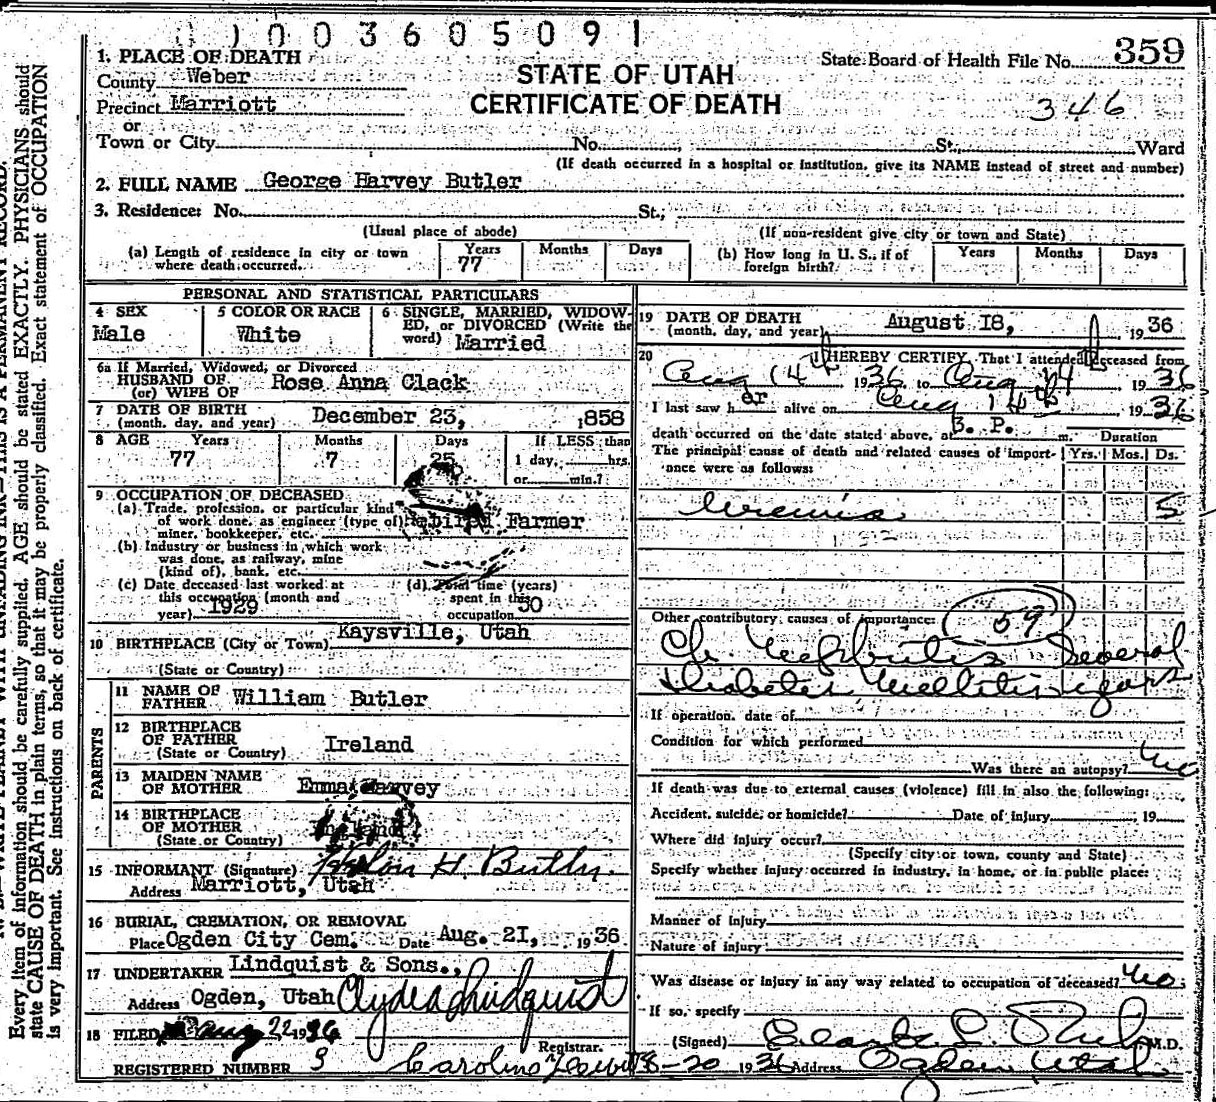 0 1 0 0 3 6 0 5 0 9 1
State Board of Health File No. 359
346
STATE OF UTAH
CERTIFICATE OF DEATH
1. PLACE OF DEATH
County Weber
Precinct Marriott
or
Town or City No. St., Ward
(If death occurred in a hospital or institution, give its NAME instead of street and number)
2. FULL NAME George Harvey Butler
3. Residence: No. St.,
(Usual place of abode) (If non-resident give city or town and State)
(a) Length of residence in city or town where death occurred. Years 77 Months Days
(b) How long in U. S., if of foreign birth? Years Months Days
PERSONAL AND STATISTICAL PARTICULARS
4 SEX Male
5 COLOR OR RACE White
6 SINGLE, MARRIED, WIDOWED, or DIVORCED (Write the word) Married
6a If Married, Widowed, or Divorced
HUSBAND OF Rose Anna Clack
(or) WIFE OF
7 DATE OF BIRTH (month, day, and year) December 23, 1858
8 AGE Years 77 Months 7 Days 25 If LESS than 1 day, hrs. or min.?
9 OCCUPATION OF DECEASED
(a) Trade, profession, or particular kind of work done, as engineer (type of) miner, bookkeeper, etc. Retired Farmer
(b) Industry or business in which work was done, as railway, mine (kind of), bank, etc.
(c) Date deceased last worked at this occupation (month and year) 1929
(d) Total time (years) spent in this occupation 50
10 BIRTHPLACE (City or Town) Kaysville, Utah
(State or Country)
PARENTS
11 NAME OF FATHER William Butler
12 BIRTHPLACE OF FATHER (State or Country) Ireland
13 MAIDEN NAME OF MOTHER Emma Harvey
14 BIRTHPLACE OF MOTHER (State or Country) England
15 INFORMANT (Signature) H. Butler.
Address Marriott, Utah
16 BURIAL, CREMATION, OR REMOVAL
Place Ogden City Cem. Date Aug. 21, 1936
17 UNDERTAKER Lindquist & Sons.,
Address Ogden, Utah Clyde Lindquist
18 FILED Aug 22 1936
Registrar.
REGISTERED NUMBER 9
19 DATE OF DEATH (month, day, and year) August 18, 1936
20 I HEREBY CERTIFY, That I attended deceased from
Aug 14th 1936, to Aug 1936
I last saw h alive on Aug 14th 1936
death occurred on the date stated above, at 8. P. m.
The principal cause of death and related causes of importance were as follows:
Duration Yrs. Mos. Ds.
Uremia 5
Other contributory causes of importance: 59
Ch. Nephritis Several
Diabetes Mellitis years
If operation, date of
Condition for which performed
Was there an autopsy? no
If death was due to external causes (violence) fill in also the following:
Accident, suicide, or homicide? Date of injury 19
Where did injury occur?
(Specify city or town, county and State)
Specify whether injury occurred in industry, in home, or in public place:
Manner of injury
Nature of injury
Was disease or injury in any way related to occupation of deceased? no
If so, specify
(Signed) M.D.
8-20 1936 Address Ogden Utah
Every item of information should be carefully supplied. AGE should be stated EXACTLY. PHYSICIANS should
state CAUSE OF DEATH in plain terms, so that it may be properly classified. Exact statement of OCCUPATION
is very important. See Instructions on back of certificate.